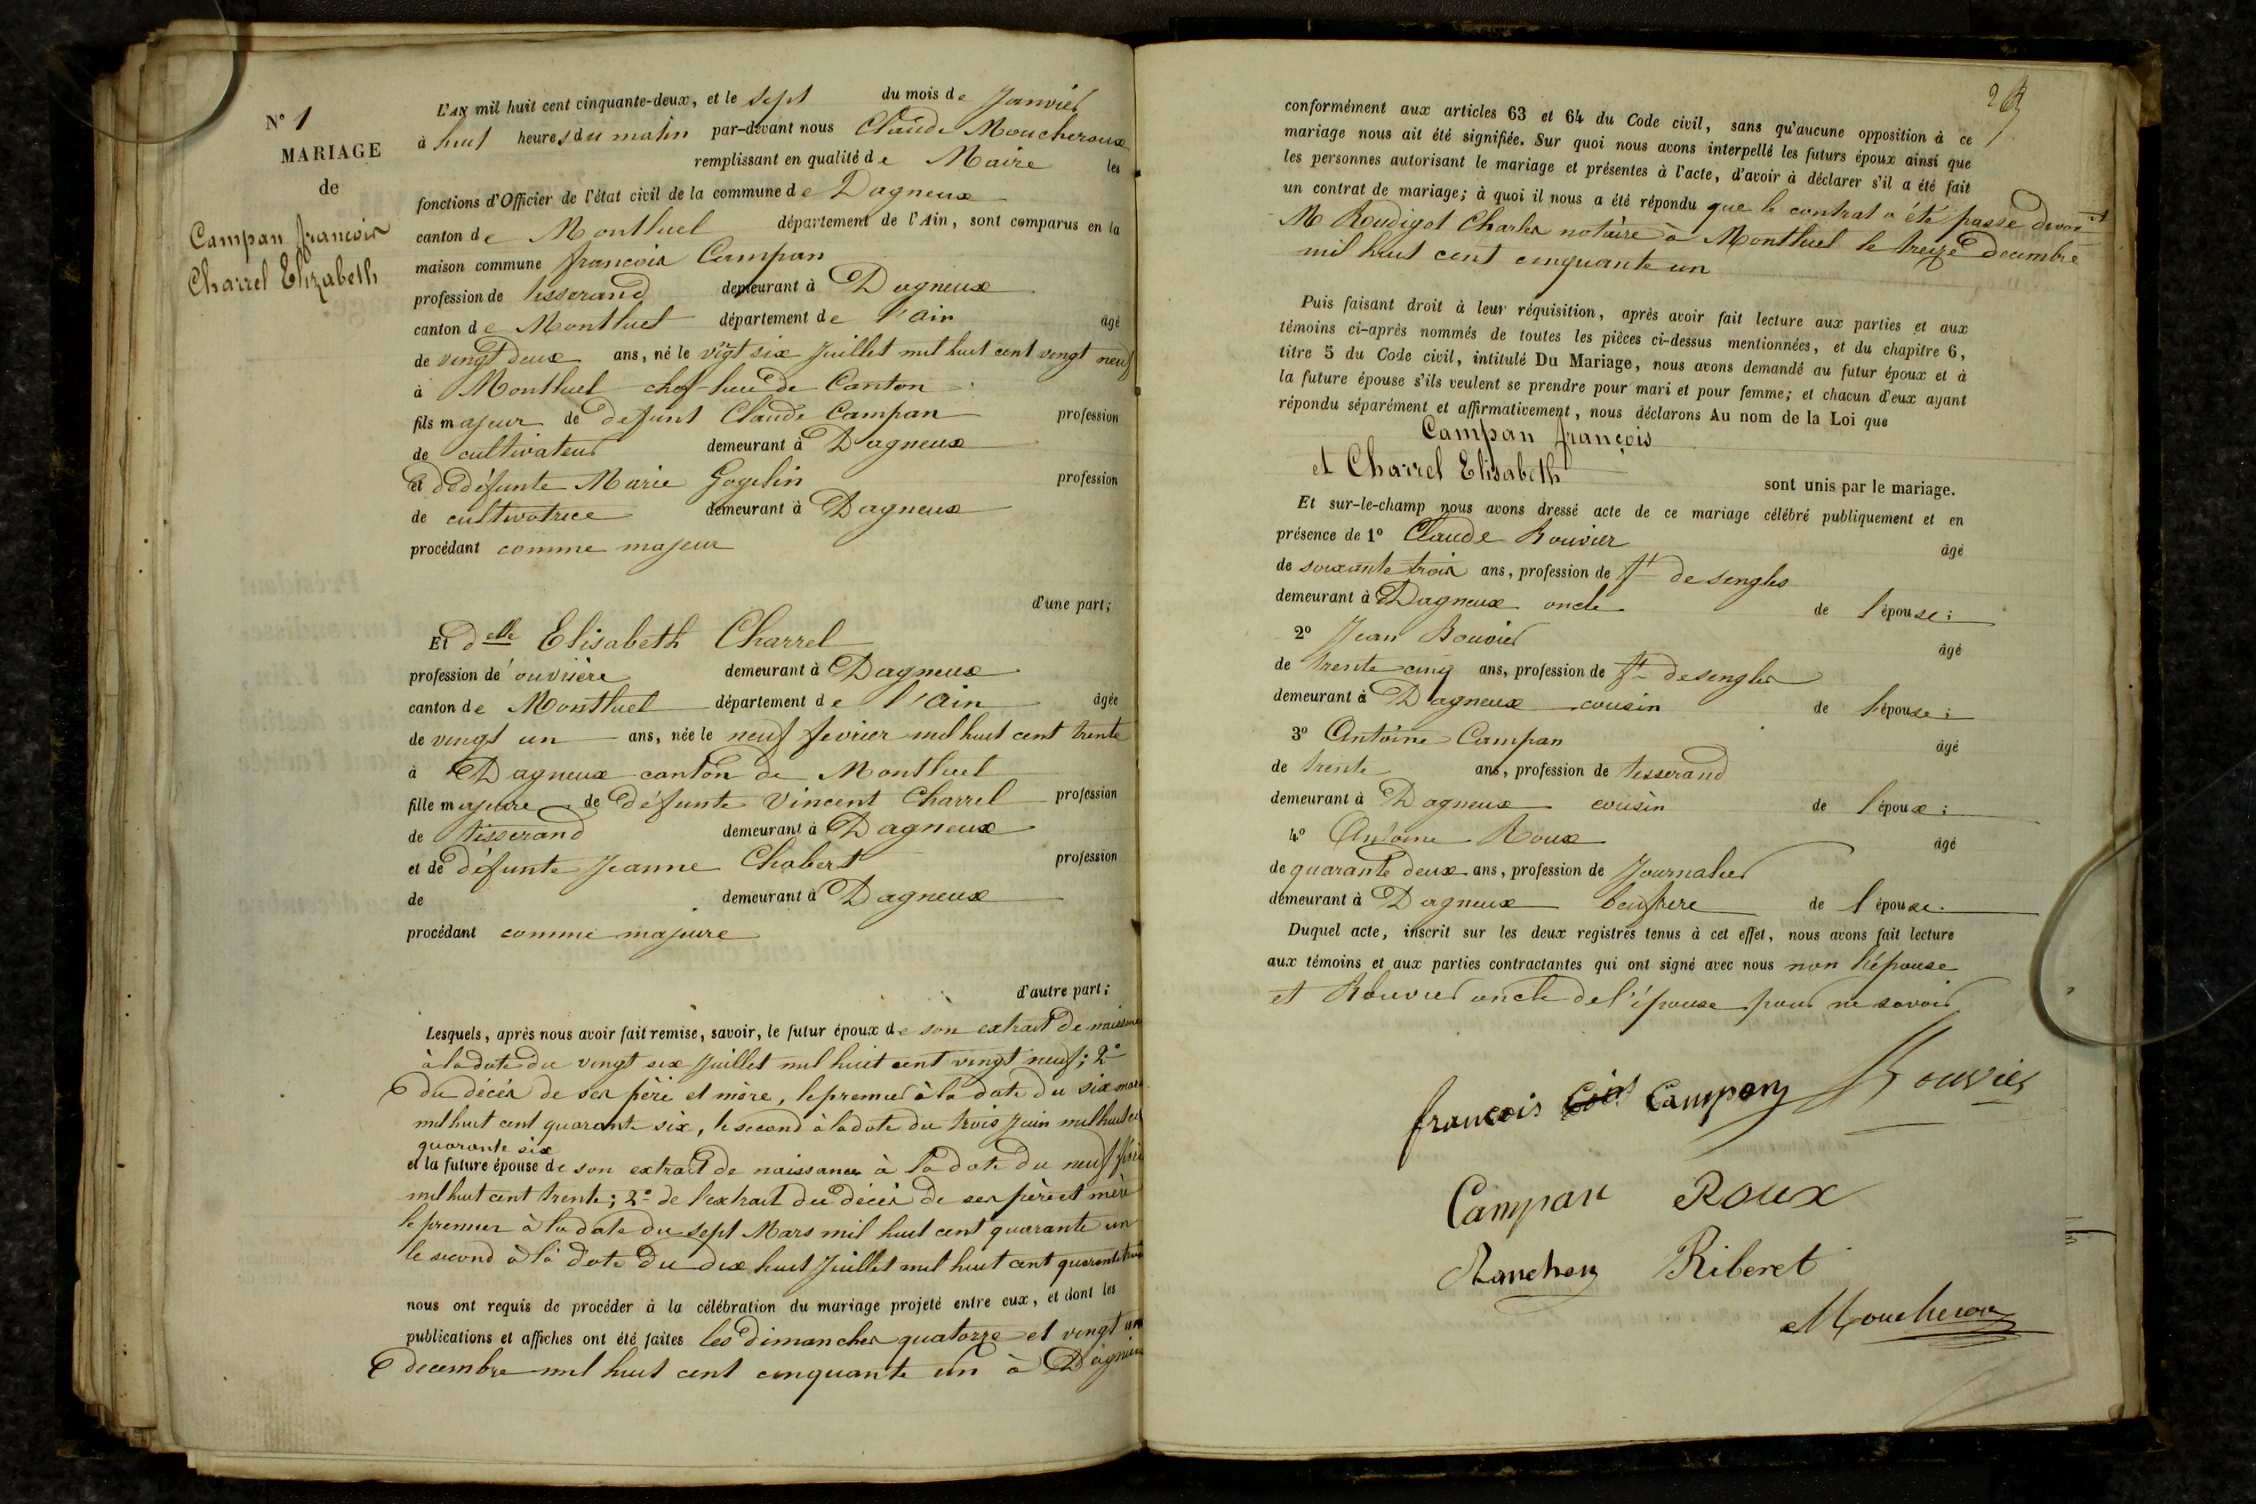 N° 1
MARIAGE
de
Campan françois
Charrel Elizabeth
L'AN mil huit cent cinquante-deux, et le sept du mois de Janvier
à huit heures du matin par-devant nous Claude Moucheroux
remplissant en qualité de Maire les
fonctions d'Officier de l'état civil de la commune de Dagneux
canton de Montluel département de l'Ain, sont comparus en la
maison commune françois Campan
profession de tisserand demeurant à Dagneux
canton de Montluel département de l'ain âgé
de vingt deux ans, né le vingt six Juillet mil huit cent vingt neuf
à Montluel chef-lieu de Canton
fils majeur de defunt Claude Campan profession
de cultivateur demeurant à Dagneux
et de défunte Marie Gogelin profession
de cultivatrice demeurant à Dagneux
procédant comme majeur
d'une part;
Et delle Elisabeth Charrel
profession de ouvrière demeurant à Dagneux
canton de Montluel département de l'ain âgée
de vingt un ans, née le neuf fevrier mil huit cent trente
à Dagneux canton de Montluel
fille majeure de défunte Vincent Charrel profession
de tisserand demeurant à Dagneux
et de défunte Jeanne Chabert profession
de demeurant à Dagneux
procédant comme majeure
d'autre part;
Lesquels, après nous avoir fait remise, savoir, le futur époux de son extrait de naissance
à la date du vingt six Juillet mil huit cent vingt neuf; 2°
du décès de ses père et mère, le premier à la date du six mars
mil huit cent quarante six, le second à la date du trois Juin mil huit cent
quarante six
et la future épouse de son extrait de naissance à la date du neuf
mil huit cent trente; 2° de l'extrait du décès de ses père et mère
le premier à la date du sept Mars mil huit cent quarante un
le second à la date du dix huit Juillet mil huit cent quarante
nous ont requis de procéder à la célébration du mariage projeté entre eux, et dont les
publications et affiches ont été faites les dimanches quatorze et vingt un
decembre mil huit cent cinquante un à Dagneux
conformément aux articles 63 et 64 du Code civil, sans qu'aucune opposition à ce
mariage nous ait été signifiée. Sur quoi nous avons interpellé les futurs époux ainsi que
les personnes autorisant le mariage et présentes à l'acte, d'avoir à déclarer s'il a été fait
un contrat de mariage; à quoi il nous a été répondu que le contrat a été passé devant
M Roudigot Charles notaire à Montluel le treize decembre
mil huit cent cinquante un
Puis faisant droit à leur réquisition, après avoir fait lecture aux parties et aux
témoins ci-après nommés de toutes les pièces ci-dessus mentionnées, et du chapitre 6,
titre 5 du Code civil, intitulé Du Mariage, nous avons demandé au futur époux et à
la future épouse s'ils veulent se prendre pour mari et pour femme; et chacun d'eux ayant
répondu séparément et affirmativement, nous déclarons Au nom de la Loi que
Campan françois
et Charrel Elisabeth
sont unis par le mariage.
Et sur-le-champ nous avons dressé acte de ce mariage célébré publiquement et en
présence de 1° Claude Rouvier âgé
de soixante trois ans, profession de ft de sengles
demeurant à Dagneux oncle de l'épouse;
2° Jean Rouvier âgé
de trente cinq ans, profession de ft de sengles
demeurant à Dagneux cousin de l'épouse;
3° Antoine Campan âgé
de trente ans, profession de tisserand
demeurant à Dagneux cousin de l'époux;
4° Antoine Roux âgé
de quarante deux ans, profession de Journalier
demeurant à Dagneux beaufrere de l'épouse.
Duquel acte, inscrit sur les deux registres tenus à cet effet, nous avons fait lecture
aux témoins et aux parties contractantes qui ont signé avec nous non l'épouse
et Rouvier oncle de l'épouse pour ne savoir
françois Campan Rouvier
Campan Roux
Ranchon Riberet
Moucheroux